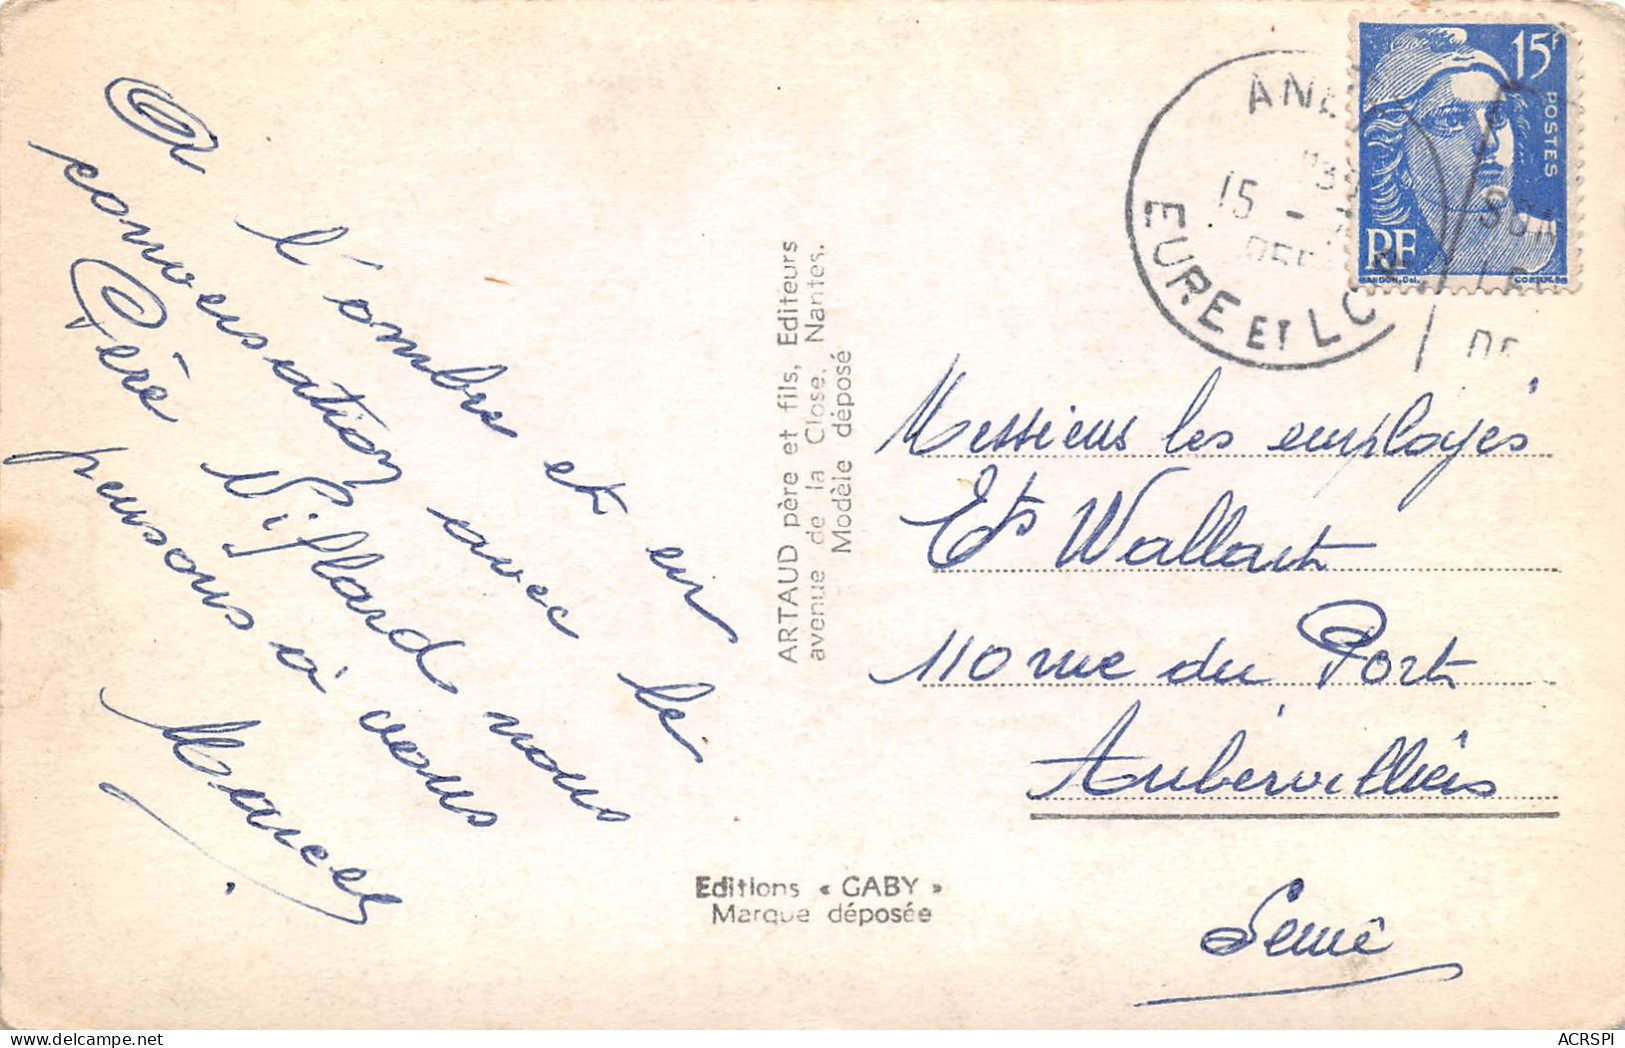 A l'ombre et en
conversation avec le
Père Niflard nous
pensons à vous
Marcel
ARTAUD père et fils, Editeurs
avenue de la Close, Nantes.
Modèle déposé
Editions « GABY »
Marque déposée
15F
POSTES
RF
EURE ET
15 -
Messieurs les employés
Ets Wallart
110 rue du Port
Aubervilliers
Seine
ACRSPI